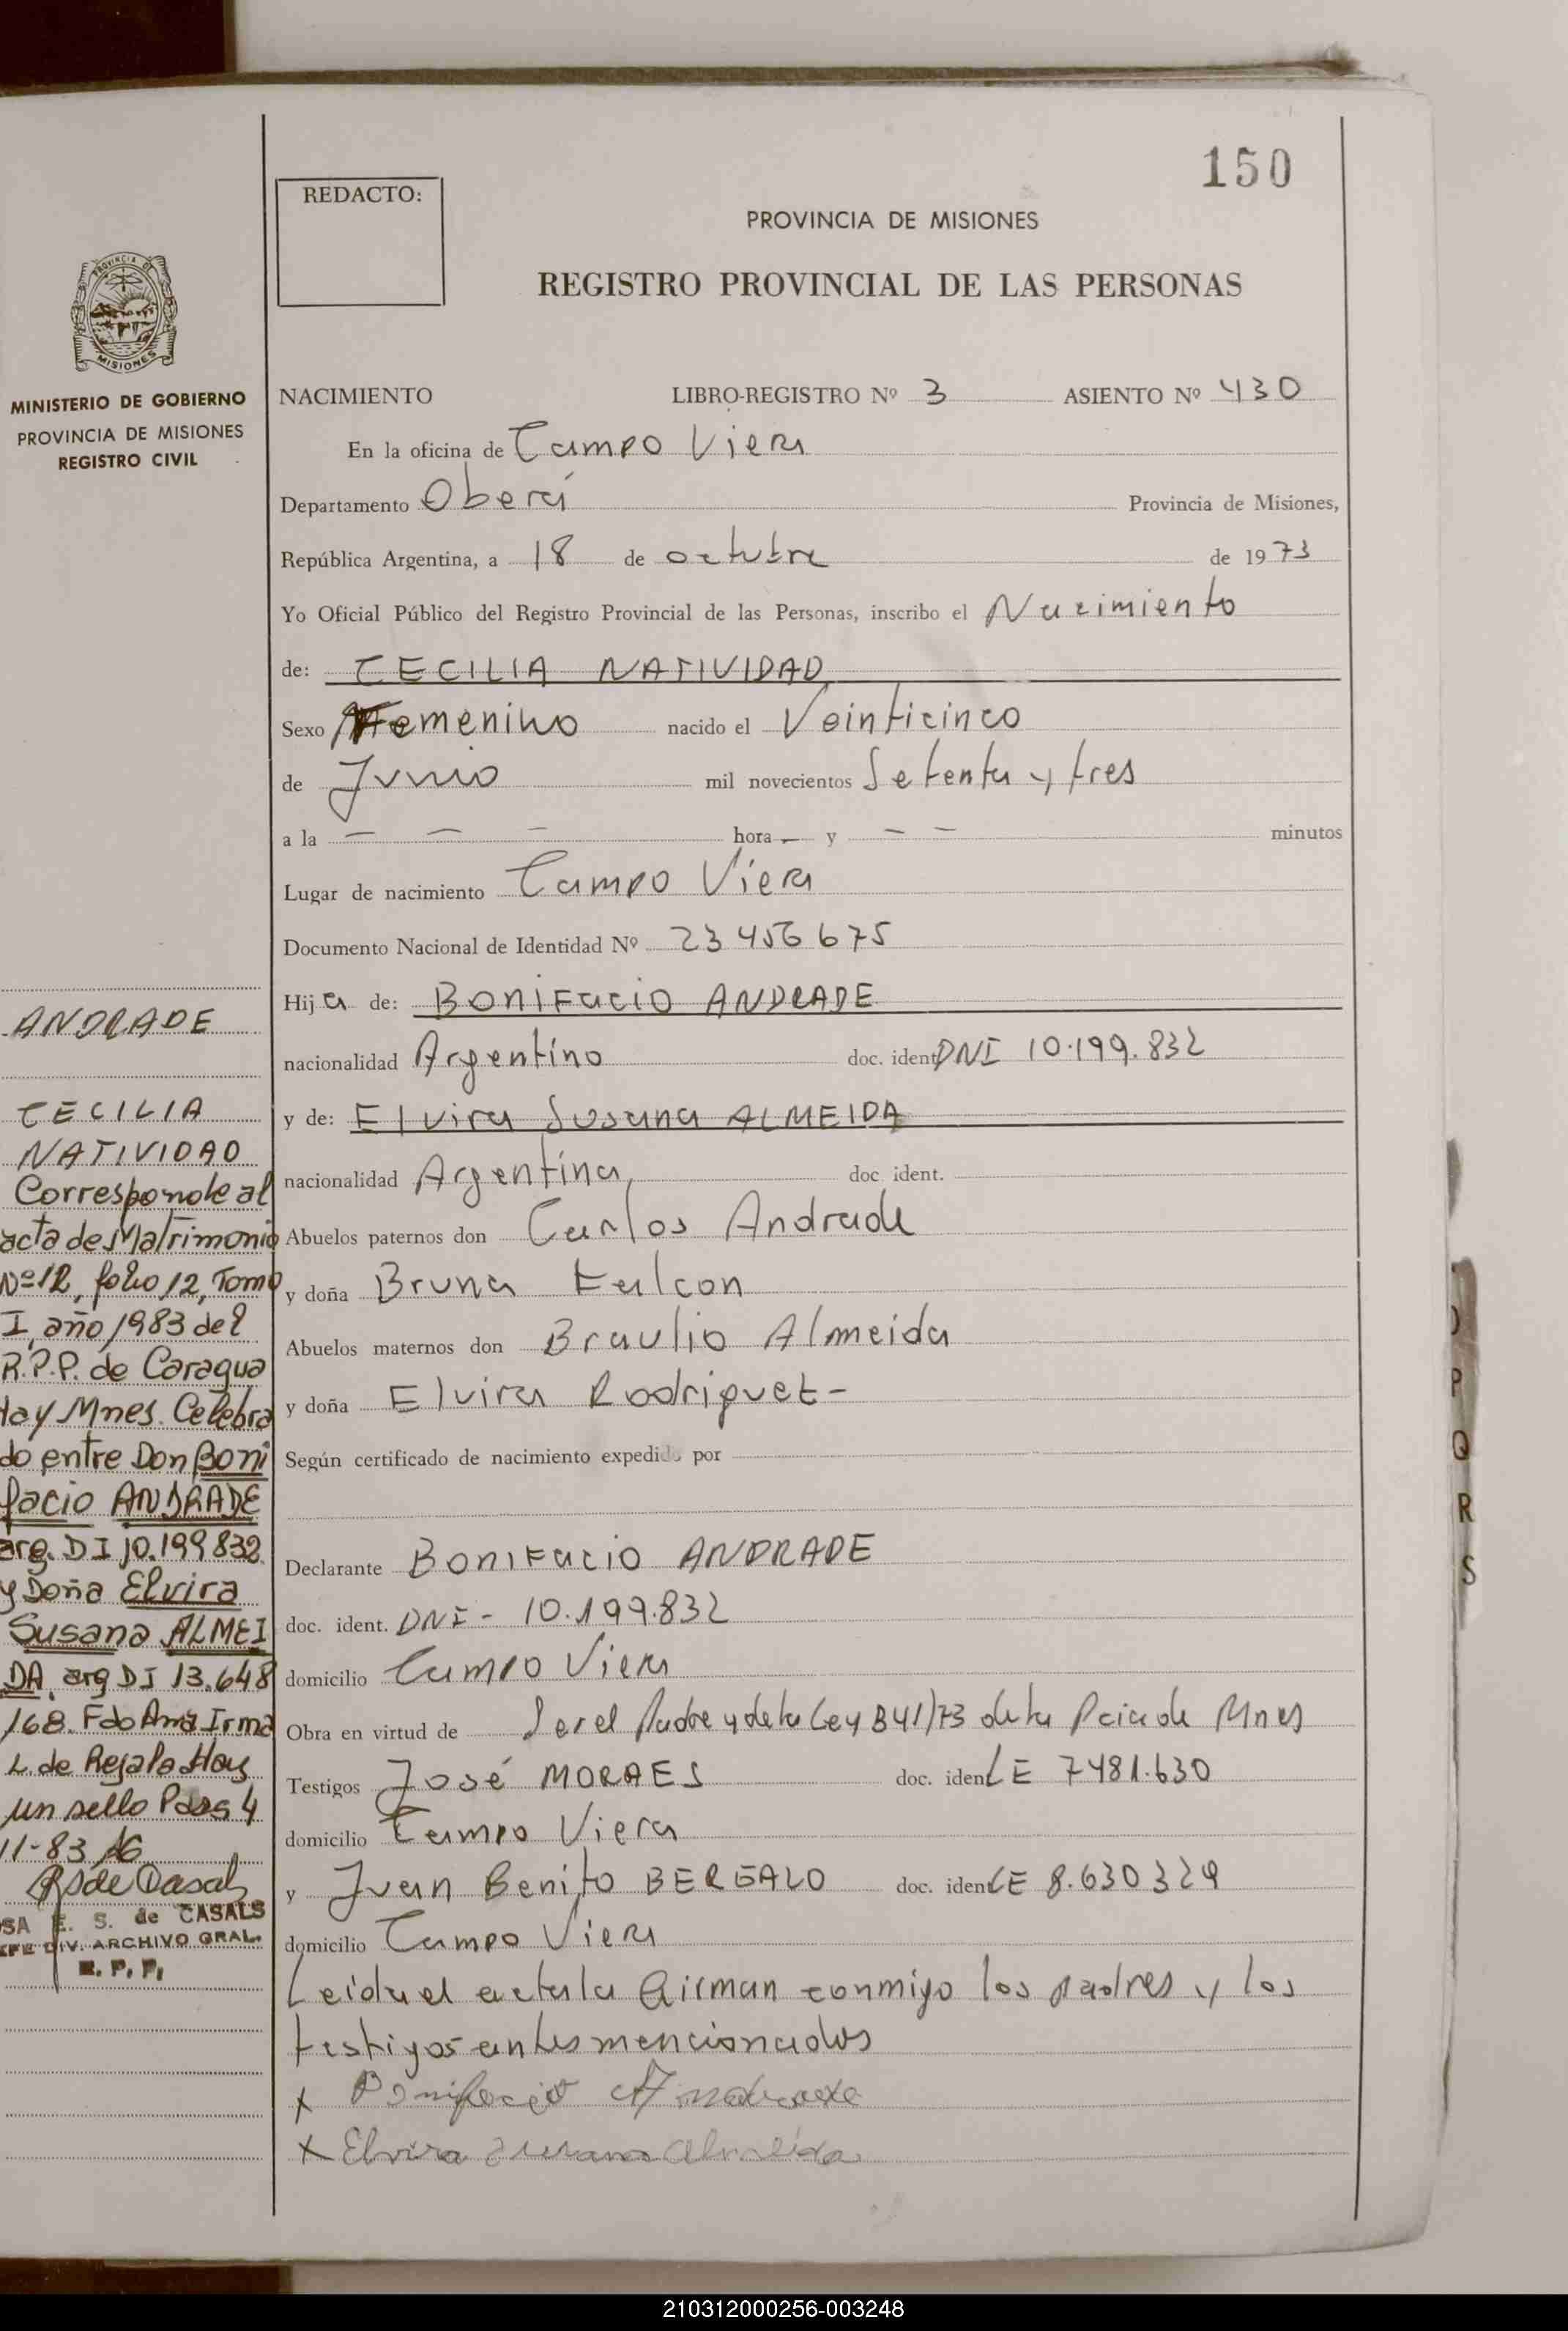 150
REDACTO:
PROVINCIA DE MISIONES
REGISTRO PROVINCIAL DE LAS PERSONAS
PROVINCIA DE
MISIONES
MINISTERIO DE GOBIERNO
PROVINCIA DE MISIONES
REGISTRO CIVIL
NACIMIENTO LIBRO-REGISTRO Nº 3 ASIENTO Nº 430
En la oficina de Campo Viera
Departamento Oberá Provincia de Misiones,
República Argentina, a 18 de octubre de 1973
Yo Oficial Público del Registro Provincial de las Personas, inscribo el Nacimiento
de: CECILIA NATIVIDAD
Sexo Femenino nacido el Veinticinco
de Junio mil novecientos Setenta y tres
a la — — — hora — y — — minutos
Lugar de nacimiento Campo Viera
Documento Nacional de Identidad Nº 23 456 675
Hija de: BONIFacio ANDRADE
nacionalidad Argentino doc. ident DNI 10.199.832
y de: Elvira Susana ALMEIDA
nacionalidad Argentina, doc. ident.
Abuelos paternos don Carlos Andrade
y doña Bruna Falcon
Abuelos maternos don Braulio Almeida
y doña Elvira Rodriguez -
Según certificado de nacimiento expedido por
Declarante BONIFacio ANDRADE
doc. ident. DNI - 10.199.832
domicilio Campo Viera
Obra en virtud de Ser el Padre y de la Ley 841/73 de la Pcia de Mnes
Testigos José MORAES doc. iden LE 7481.630
domicilio Campo Viera
y Juan Benito BERGALO doc. iden LE 8.630329
domicilio Campo Viera
Leida el acta la Firman conmigo los padres y los
testigos antes mencionados
x Bonifacio Andrade
x Elvira Susana Almeida
ANDRADE
CECILIA
NATIVIDAD
Corresponde al
acta de Matrimonio
Nº 12, folio 12, Tomo
I, año 1983 del
R.P.P. de Caragua
tay Mnes. Celebra
do entre Don Boni
facio ANDRADE
arg. DI 10.199832
y Doña Elvira
Susana ALMEI
DA, arg DI 13.648
168. Fdo Ana Irma
L. de Regala Hay
un sello Pdas 4
11-83
Rs de Casals
SA E. S. de CASALS
EFE DIV. ARCHIVO GRAL.
R. P. P.
P
Q
R
S
210312000256-003248